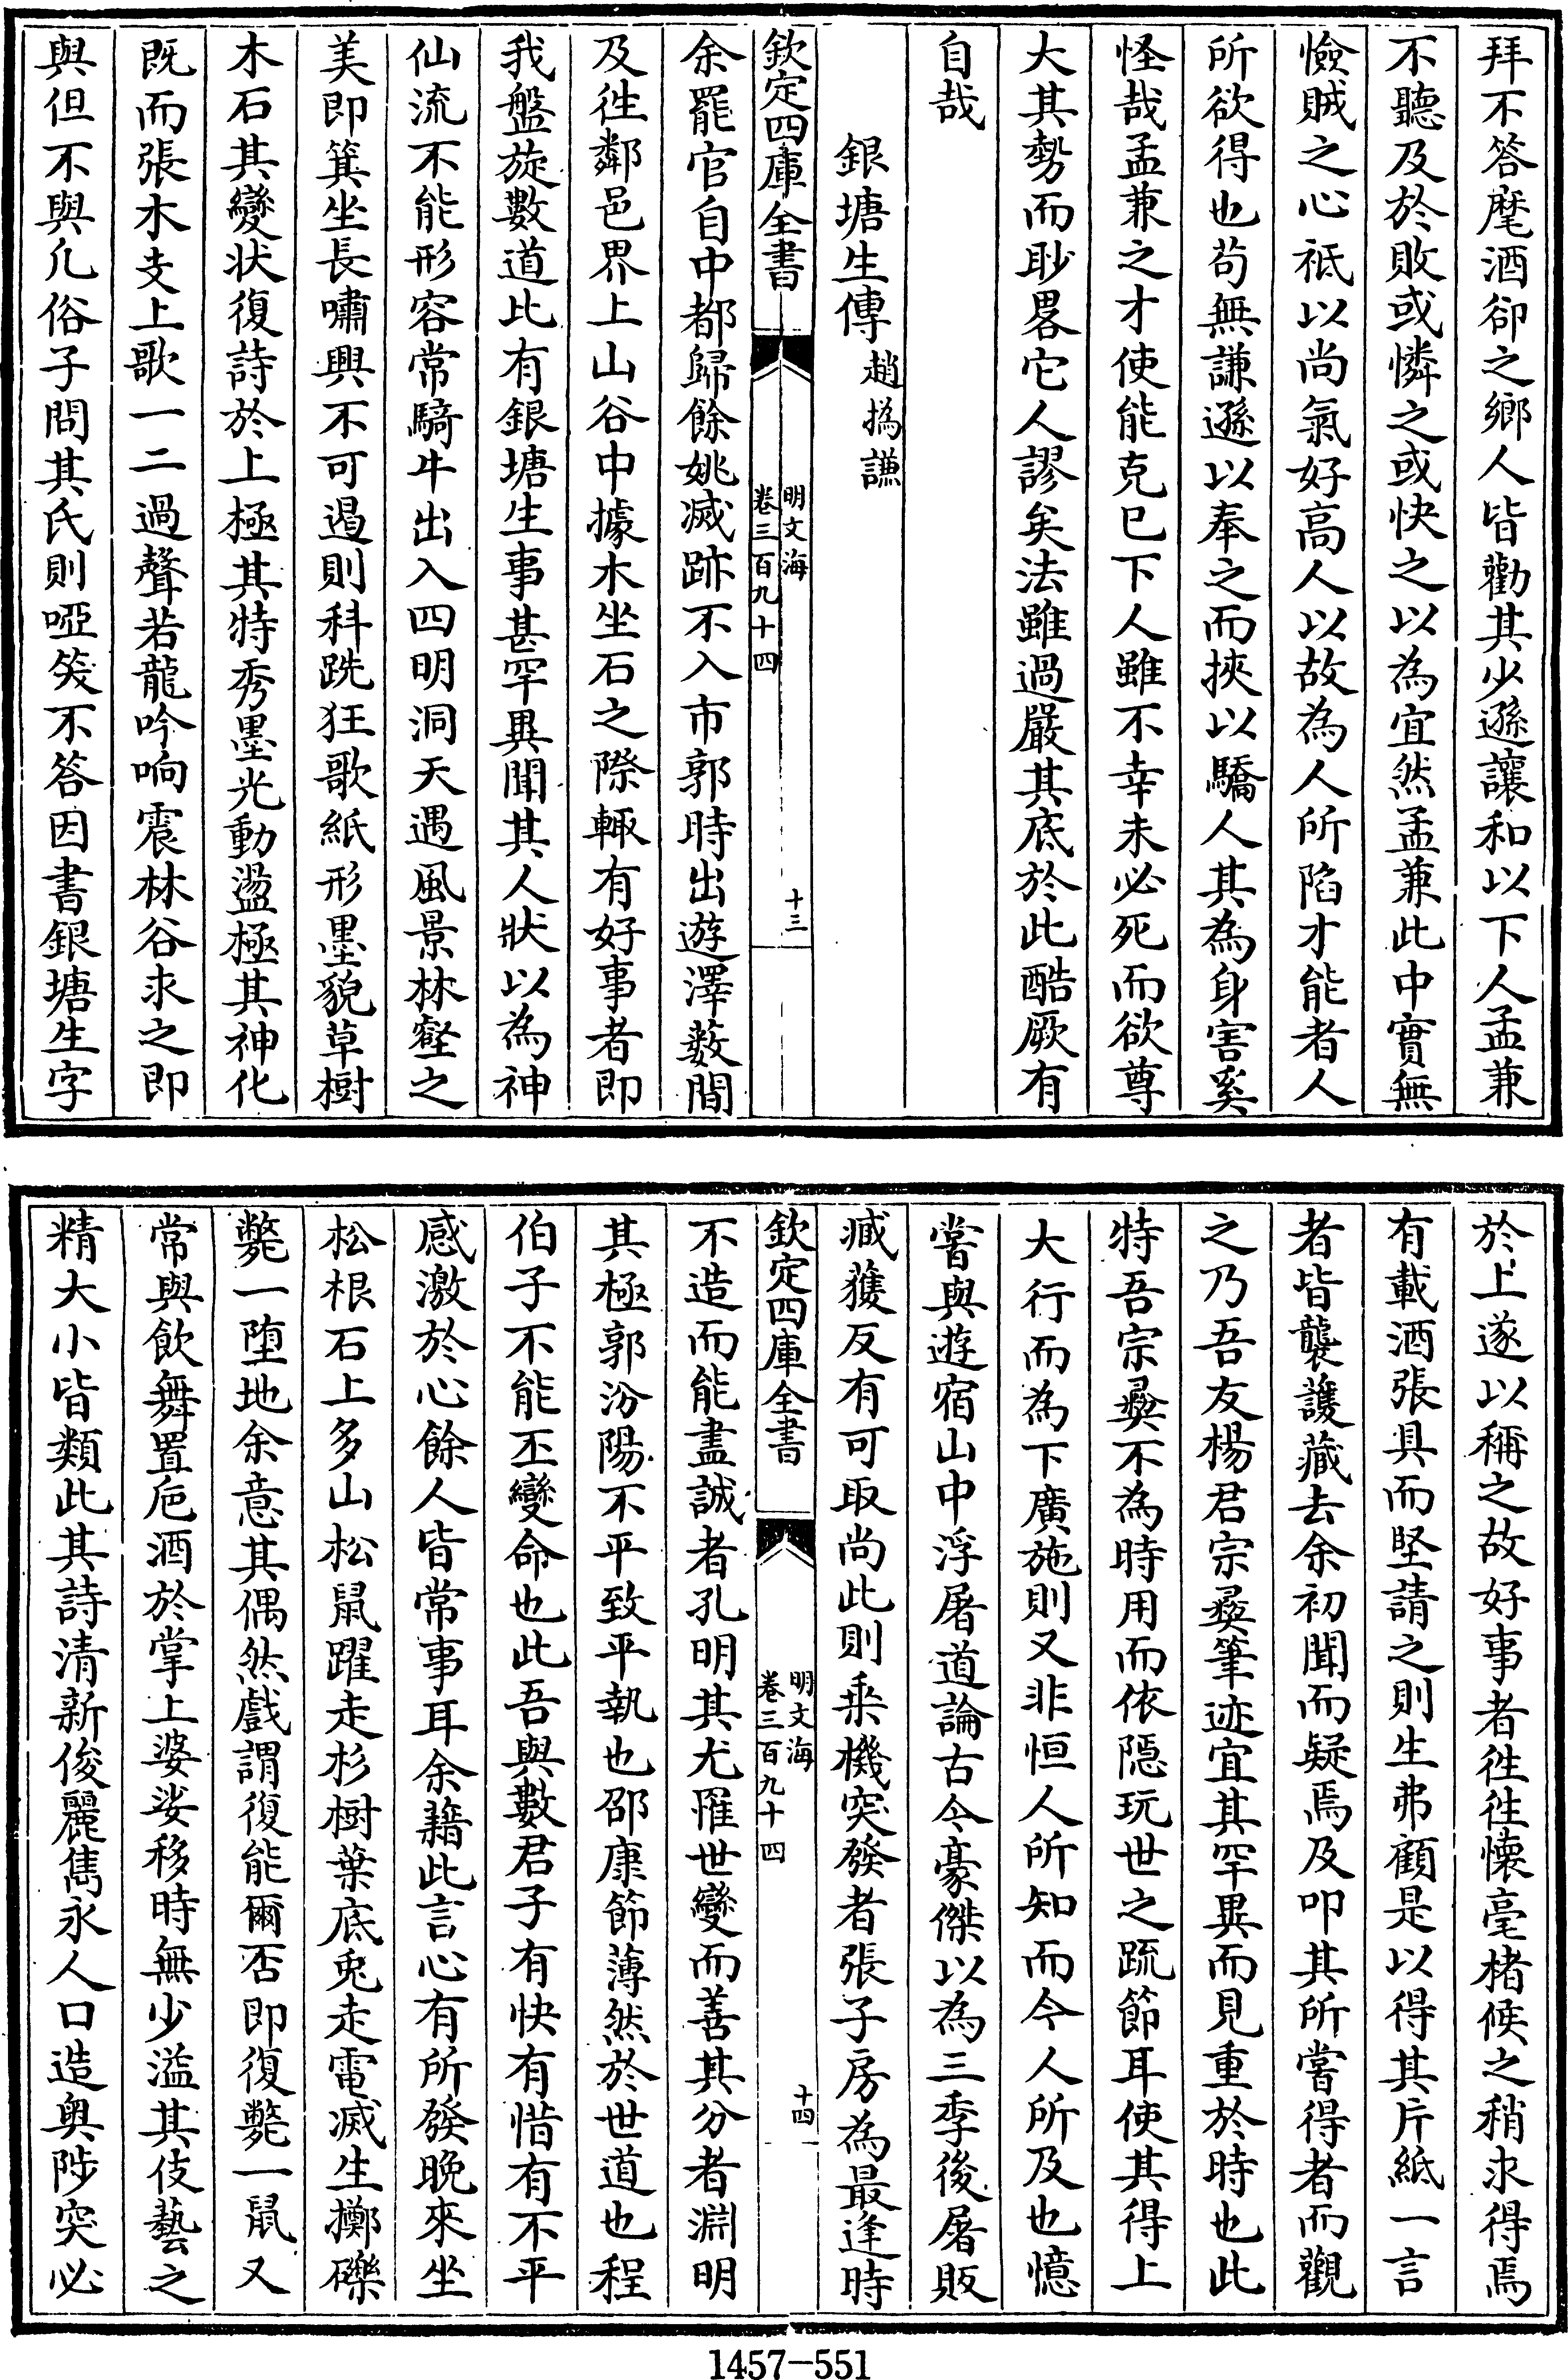 拜不答麾酒卻之鄉人皆勸其少遜讓和以下人孟兼
不聽及於敗或憐之或快之以為宜然孟兼此中實無
憸賊之心祗以尚氣好高人以故為人所陷才能者人
所欲得也苟無謙遜以奉之而挾以驕人其為身害奚
怪哉孟兼之才使能克已下人雖不幸未必死而欲尊
大其勢而眇畧它人謬矣法雖過嚴其底於此酷厥有
自哉
銀塘生傳趙撝謙
欽定四庫全書
明文海
卷三百九十四
十三
余罷官自中都歸餘姚滅跡不入市郭時出遊澤藪間
及徃鄰邑界上山谷中據木坐石之際輙有好事者即
我盤旋數道比有銀塘生事甚罕異聞其人狀以為神
仙流不能形容常騎牛出入四明洞天遇風景林壑之
美即箕坐長嘯興不可遏則科跣狂歌紙形墨貌草樹
木石其變狀復詩於上極其特秀墨光動盪極其神化
既而張木支上歌一二過聲若龍吟响震林谷求之即
與但不與凡俗子問其氏則啞笑不答因書銀塘生字
於上遂以稱之故好事者徃徃懐毫楮候之稍求得焉
有載酒張具而堅請之則生弗顧是以得其片紙一言
者皆襲護藏去余初聞而疑焉及叩其所嘗得者而觀
之乃吾友楊君宗彞筆迹宜其罕異而見重於時也此
特吾宗彞不為時用而依隠玩世之疏節耳使其得上
大行而為下廣施則又非恒人所知而今人所及也憶
嘗與遊宿山中浮屠道論古今豪傑以為三季後屠販
臧獲反有可取尚此則乗機突發者張子房為最逢時
欽定四庫全書
明文海
卷三百九十四
十四
不造而能盡誠者孔明其尤罹世變而善其分者淵明
其極郭汾陽不平致平執也邵康節薄然於世道也程
伯子不能丕變命也此吾與數君子有快有惜有不平
感激於心餘人皆常事耳余籍此言心有所發晚來坐
松根石上多山松鼠躍走杉樹葉底兎走電滅生擲礫
斃一堕地余意其偶然戲謂復能爾否即復斃一鼠又
常與飲舞置巵酒於掌上婆娑移時無少溢其伎藝之
精大小皆類此其詩清新俊麗雋永人口造奥陟突必
1457—551